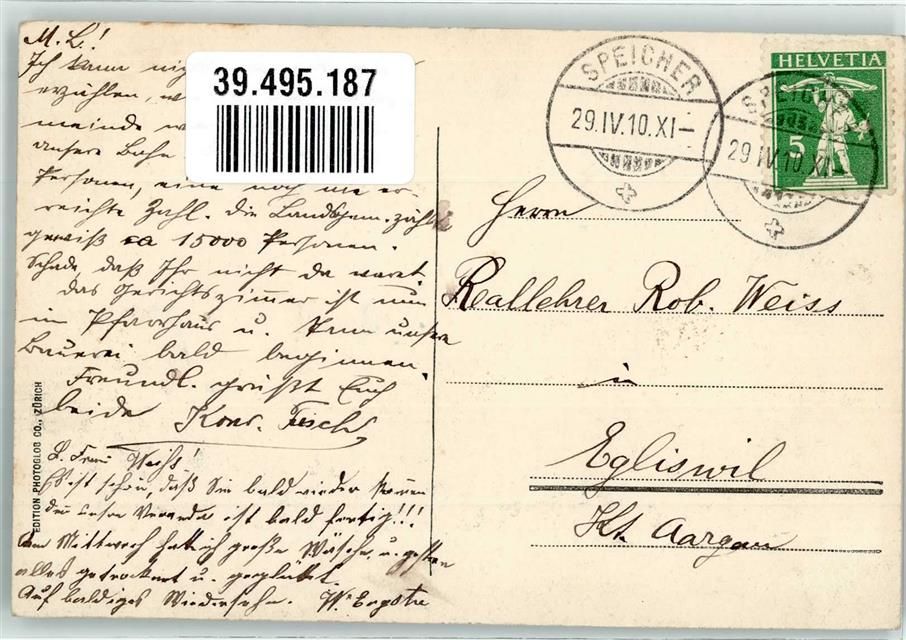 M. L.!
Ich kann
erzählen, w
meinde w
unsere Bahn
Personen, eine noch nie er-
reichte Zahl. Die Landsgem. zählte
gewiß ca 15000 Personen.
Schade, daß Ihr nicht da waret.
Das Gerichtszimmer ist nun
im Pfarrhaus u. kann unsere
Bauerei bald beginnen.
Freundl. grüßt Euch
beide Konr.
L. Frau Weiss!
Es ist schön, daß Sie bald wieder kommen
Veranda ist bald fertig!!!
Am Mittwoch hatt ich große Wäsche u. gestern
alles getrocknet u. geglättet.
Auf baldiges Wiedersehn.
39.495.187
EDITION PHOTOGLOB CO., ZÜRICH
SPEICHER
29.IV.10.XI-
SPEICHER
29.IV.10.XI-
HELVETIA
5
Herrn
Reallehrer Rob. Weiss
in
Egliswil
Kt. Aargau